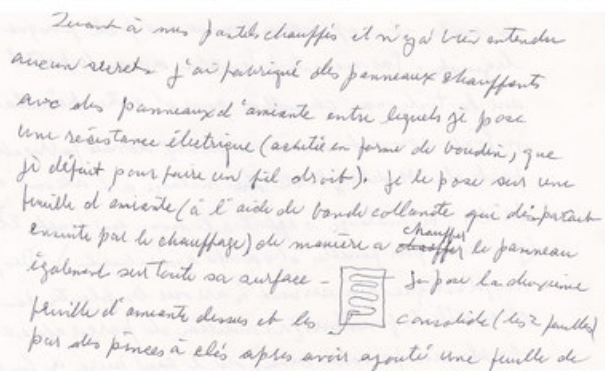 Quant à mes pastels chauffés il n'y a bien entendu
aucun secret. J'ai fabriqué des panneaux chauffants
avec des panneaux d'amiante entre lequels je pose
une résistance électrique (achetée en forme de boudin, que
je défait pour faire un fil droit). Je le pose sur une
feuille d'amiante (à l'aide de bande collante qui disparait
ensuite par le chauffage) de manière a chauffer le panneau
également sur toute sa surface - je pose la deuxième
feuille d'amiante dessus et les consolide (les 2 feuilles)
par des pinces à clés apres avoir ajouté une feuille de